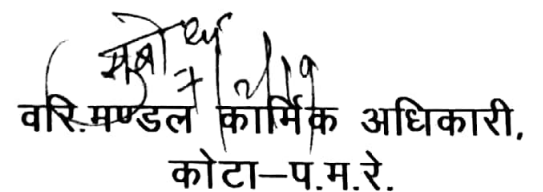 वरि.मण्डल कार्मिक अधिकारी,
कोटा–प.म.रे.